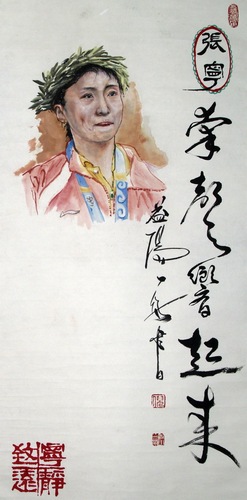 張寧
掌聲響起来
益陽
寧靜致遠